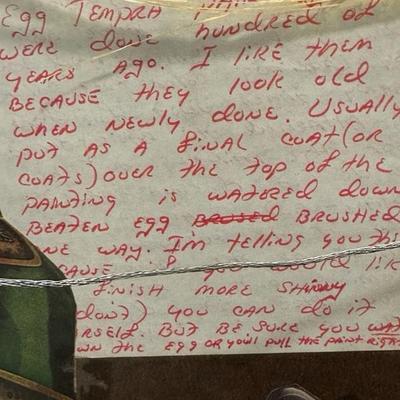 Egg Tempra
were done hundred of
years ago. I like them
because they look old
when newly done. Usually
put as a final coat (or
coats) over the top of the
painting is watered down
beaten egg brused brushed
one way. I'm telling you this
cause if you would like
finish more shiny
don't) you can do it
rself. But be sure you wat
wn the egg or you'll pull the paint right